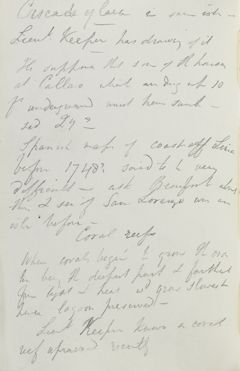 Cascade of Lava in some isle –
Lieut Keeper has drawing of it
He supposes the
at Callao which
underground must have sunk –
Spanish map of coast off Lima
before 1748? said to be very
different – ask Beaufort about
this & see if San Lorenzo was an
isle before –
Coral reefs
When corals began to grow the one
the deepest part & farthest
from light & heat wd grow slowest
hence lagoon preserved –
Lieut Keeper knows a coral
reef upraised recently